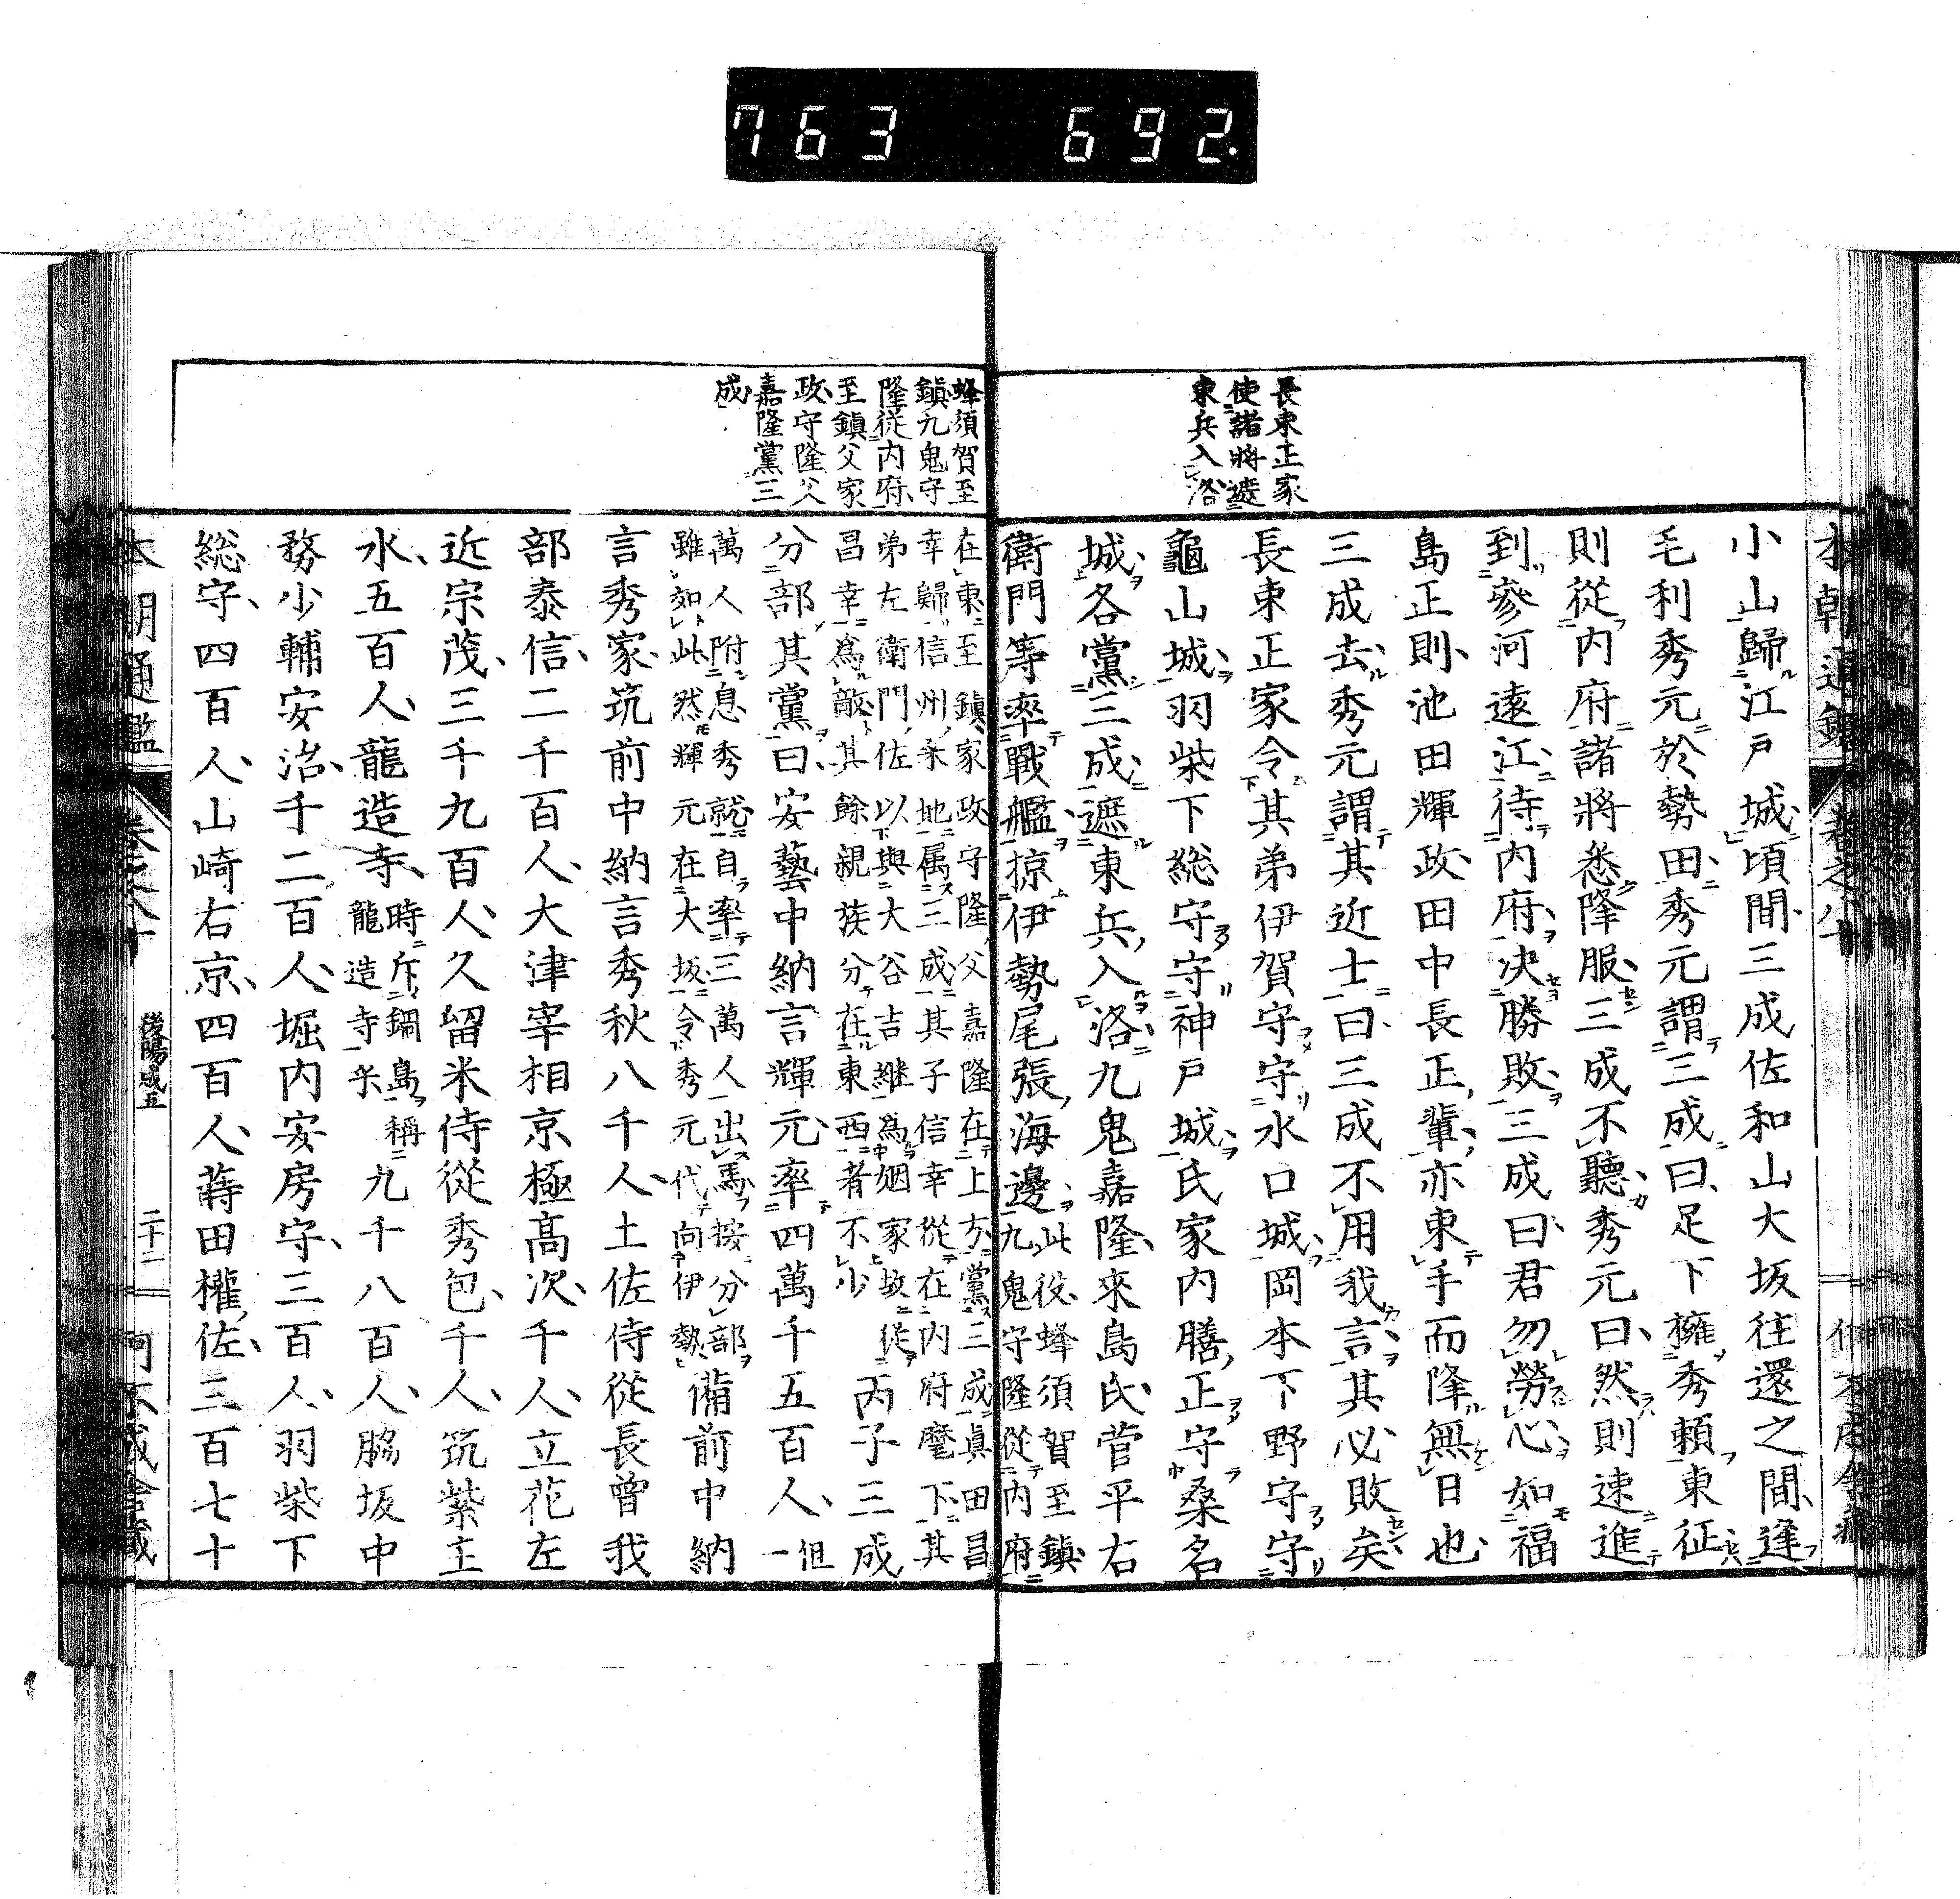 763 692.
長束正家
使諸將遮
東兵入洛
小山歸江戸城頃間三成佐和山大坂往還之間逢
毛利秀元於勢田秀元謂三成曰足下擁秀賴東征
則從内府諸將悉降服三成不聽秀元曰然則速進
到參河遠江待内府決勝敗三成曰君勿勞心如福
島正則池田輝政田中長正輩亦東手而降無日也
三成去秀元謂其近士曰三成不用我言其必敗矣
長束正家令其弟伊賀守守水口城岡本下野守守
龜山城羽柴下総守守神戸城氏家内膳正守桑名
城各黨三成遮東兵入洛九鬼嘉隆來島氏菅平右
衛門等率戰艦掠伊勢尾張海邊此役蜂須賀至鎮
九鬼守隆從内府
蜂須賀至
鎮九鬼守
隆從内府
至鎮父家
政守隆父
嘉隆黨三
成
在東至鎮家政守隆父嘉隆在上方黨三成眞田昌
幸歸信州禾地属三成其子信幸從在内府麾下其
弟左衛門佐以與大谷吉継為姻家故從
昌幸為敵其餘親族分在東西者不少
丙子三成
分部其黨曰安藝中納言輝元率四萬千五百人但一
萬人附息秀就自率三萬人出馬按分部
雖如此然輝元在大坂令秀元代向伊勢
備前中納
言秀家筑前中納言秀秋八千人土佐侍從長曾我
部泰信二千百人大津宰相京極高次千人立花左
近宗茂三千九百人久留米侍從秀包千人筑紫主
水五百人龍造寺時斥鍋島稱
龍造寺乎
九千八百人脇坂中
務少輔安治千二百人堀内安房守三百人羽柴下
総守四百人山崎右京四百人蒔田權佐三百七十
本朝通鑑
卷之八十
後陽成五
二十二